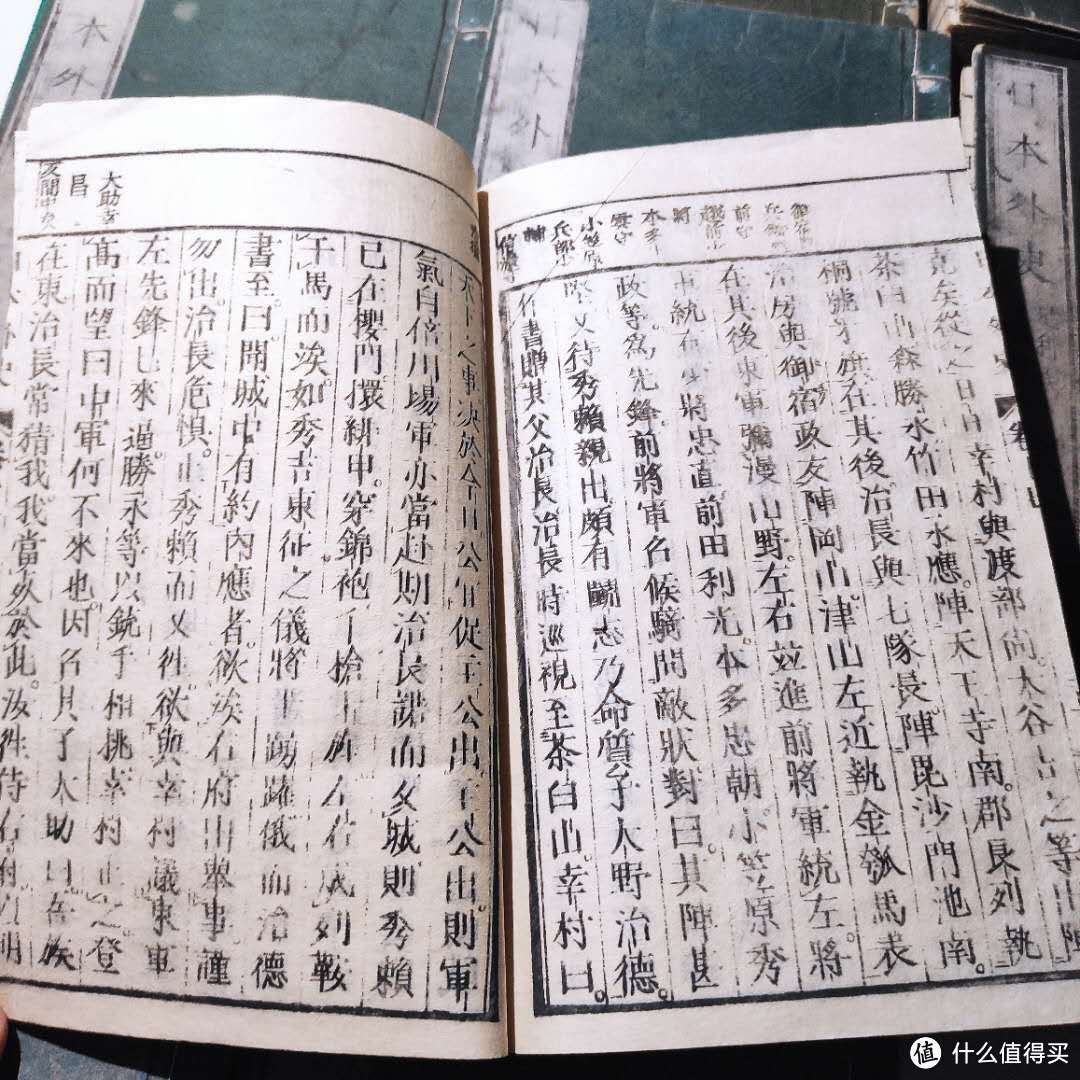 本外
日本外
日本外史
堯矣從之五日幸村與渡部尚大谷吉之等出陣
茶臼山森勝永竹田永應陣天王寺南郡長列執
桐號牙旗在其後治長與七隊長陣毘沙門池南
治房與御宿政友陣岡山津山左近執金瓢馬表
在其後東軍彌漫山野左右並進前將軍統左將
軍統右少將忠直前田利光本多忠朝小笠原秀
政等爲先鋒前將軍名候騎問敵狀對曰其陣甚
堅又待秀賴親出頗有鬬志乃命質子大野治德
作書贈其父治長治長時巡視至茶臼山幸村曰
御宿
前守
本多
小笠原
兵部
天下之事決於今日公宜促主公出主公出則軍
氣自倍川場軍亦當赴期治長諾而反城則秀賴
已在櫻門擐緋甲穿錦袍千槍士旂左右成列鞍
馬而俟如秀吉東征之儀將士踴躍俄而治德
書至曰開城中有約內應者欲俟右府出舉事謹
勿出治長危惧止秀賴而又往欲與幸村議東軍
左先鋒已來逼勝永等以銃手相挑幸村止之登
高而望曰中軍何不來也因名其子大助曰吾族
在東治長常猜我我當死於此汝往侍右府以明
大助幸
昌